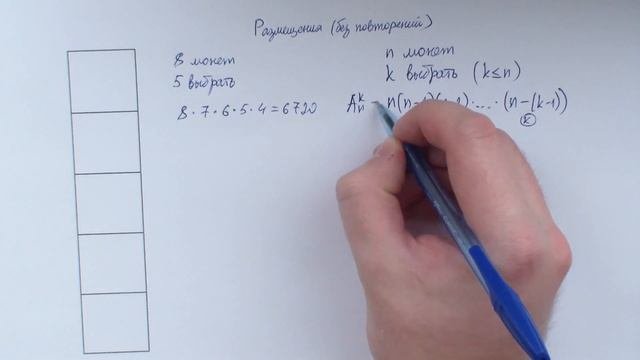 Размещения (без повторений)
8 монет
5 выбрать
8 · 7 · 6 · 5 · 4 = 6720
n монет
k выбрать (k ≤ n)
Aₙᵏ = n(n-1)( -1) · ... · (n-(k-1))
k